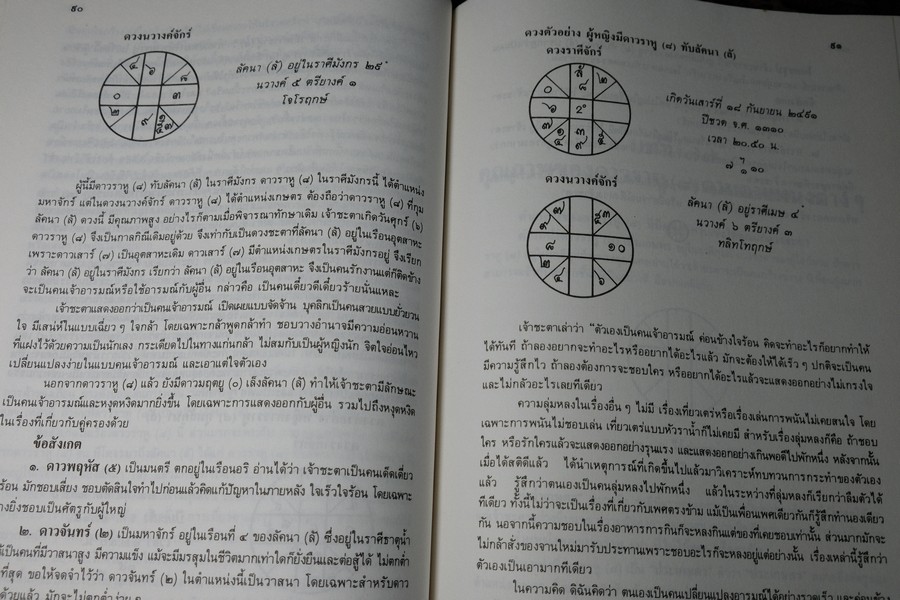 ๙๐
ดวงนวางค์จักร์
๔ ๖ ๘
๐ ๓
๒ ๙
ลัคนา (ลั) อยู่ในราศีมังกร ๒๙°
นวางค์ ๕ ตรียางค์ ๑
โจโรฤกษ์
ผู้นี้มีดาวราหู (๘) ทับลัคนา (ลั) ในราศีมังกร ดาวราหู (๘) ในราศีมังกรนี้ ได้ตำแหน่ง
มหาจักร์ แต่ในดวงนวางค์จักร์ ดาวราหู (๘) ได้ตำแหน่งเกษตร ต้องถือว่าดาวราหู (๘) ที่กุม
ลัคนา (ลั) ดวงนี้ มีคุณภาพสูง อย่างไรก็ตามเมื่อพิจารณาทักษาเดิม เจ้าชะตาเกิดวันศุกร์ (๖)
ดาวราหู (๘) จึงเป็นกาลกิณีเดิมอยู่ด้วย จึงเท่ากับเป็นดวงชะตาที่ลัคนา (ลั) อยู่ในเรือนอุตสาหะ
เพราะดาวเสาร์ (๗) เป็นอุตสาหะเดิม ดาวเสาร์ (๗) มีตำแหน่งเกษตรในราศีมังกรอยู่ จึงเรียก
ว่า ลัคนา (ลั) อยู่ในราศีมังกร เรียกว่า ลัคนา (ลั) อยู่ในเรือนอุตสาหะ จึงเป็นคนรักงานแต่ก็ติดข้าง
จะเป็นคนเจ้าอารมณ์หรือใช้อารมณ์กับผู้อื่น กล่าวคือ เป็นคนเดี๋ยวดีเดี๋ยวร้ายนั่นแหละ
เจ้าชะตาแสดงออกว่าเป็นคนเจ้าอารมณ์ เปิดเผยแบบจัดจ้าน บุคลิกเป็นคนสวยแบบยั่วยวน
ใจ มีเสน่ห์ในแบบเฉี่ยว ๆ ใจกล้า โดยเฉพาะกล้าพูดกล้าทำ ชอบวางอำนาจมีความอ่อนหวาน
ที่แฝงไว้ด้วยความเป็นนักเลง กระเดียดไปในทางแก่นกล้า ไม่สมกับเป็นผู้หญิงนัก จิตใจอ่อนไหว
เปลี่ยนแปลงง่ายในแบบคนเจ้าอารมณ์ และเอาแต่ใจตัวเอง
นอกจากดาวราหู (๘) แล้ว ยังมีดาวมฤตยู (๐) เล็งลัคนา (ลั) ทำให้เจ้าชะตามีลักษณะ
เป็นคนเจ้าอารมณ์และหงุดหงิดมากยิ่งขึ้น โดยเฉพาะการแสดงออกกับผู้อื่น รวมไปถึงหงุดหงิด
ในเรื่องที่เกี่ยวกับคู่ครองด้วย
ข้อสังเกต
๑. ดาวพฤหัส (๕) เป็นมนตรี ตกอยู่ในเรือนอริ อ่านได้ว่า เจ้าชะตาเป็นคนเด็ดเดี่ยว
ร้อน มักชอบเสี่ยง ชอบตัดสินใจทำไปก่อนแล้วคิดแก้ปัญหาในภายหลัง ใจเร็วใจร้อน โดยเฉพาะ
ยิ่งชอบเป็นศัตรูกับผู้ใหญ่
๒. ดาวจันทร์ (๒) เป็นมหาจักร์ อยู่ในเรือนที่ ๔ ของลัคนา (ลั) ซึ่งอยู่ในราศีธาตุน้ำ
เป็นคนที่มีวาสนาสูง มีความแข็ง แม้จะมีมรสุมในชีวิตมากเท่าใดก็ยั่งยืนและต่อสู้ได้ ไม่ตกต่ำ
ที่สุด ขอให้จดจำไว้ว่า ดาวจันทร์ (๒) ในตำแหน่งนี้เป็นวาสนา โดยเฉพาะสำหรับดาว
ด้วยแล้ว มักจะไม่ตกต่ำง่าย ๆ
ดวงตัวอย่าง ผู้หญิงมีดาวราหู (๘) ทับลัคนา (ลั)
๙๑
ดวงราศีจักร์
ลั ๘ ๒
๐
๖ 2°
๗ ๓ ๙ ๕
เกิดวันเสาร์ที่ ๑๘ กันยายน ๒๔๙๑
ปีชวด จ.ศ. ๑๓๑๐
เวลา ๒๐.๕๐ น.
๗ ๑ ๑๐
ดวงนวางค์จักร์
๗
๘ ๑๐
๒ ๔ ๖
ลัคนา (ลั) อยู่ราศีเมษ ๔°
นวางค์ ๖ ตรียางค์ ๓
ทลิทโทฤกษ์
เจ้าชะตาเล่าว่า "ตัวเองเป็นคนเจ้าอารมณ์ ค่อนข้างใจร้อน คิดจะทำอะไรก็อยากทำให้
ได้ทันที ถ้าลองอยากจะทำอะไรหรืออยากได้อะไรแล้ว มักจะต้องให้ได้เร็ว ๆ ปกติจะเป็นคน
มีความรู้สึกไว ถ้าลองต้องการจะชอบใคร หรืออยากได้อะไรแล้วจะแสดงออกอย่างไม่เกรงใจ
และไม่กลัวอะไรเลยทีเดียว
ความลุ่มหลงในเรื่องอื่น ๆ ไม่มี เรื่องเที่ยวเตร่หรือเรื่องเล่นการพนันไม่เคยสนใจ โดย
เฉพาะการพนันไม่ชอบเล่น เที่ยวเตร่แบบหัวราน้ำก็ไม่เคยมี สำหรับเรื่องลุ่มหลงก็คือ ถ้าชอบ
ใคร หรือรักใครแล้วจะแสดงออกอย่างรุนแรง และแสดงออกอย่างเกินพอดีไปพักหนึ่ง หลังจากนั้น
เมื่อได้สติดีแล้ว ได้นำเหตุการณ์ที่เกิดขึ้นไปแล้วมาวิเคราะห์ทบทวนการกระทำของตัวเอง
แล้ว รู้สึกว่าตนเองเป็นคนลุ่มหลงไปพักหนึ่ง แล้วในระหว่างที่ลุ่มหลงก็เรียกว่าลืมตัวได้
ทีเดียว ทั้งนี้ไม่ว่าจะเป็นเรื่องที่เกี่ยวกับเพศตรงข้าม แม้เป็นเพื่อนเพศเดียวกันก็รู้สึกทำนองเดียว
กัน นอกจากนี้ความชอบในเรื่องอาหารการกินก็จะหลงกินแต่ของที่เคยชอบเท่านั้น ส่วนมากมักจะ
ไม่กล้าสั่งของจานใหม่มารับประทานเพราะชอบอะไรก็จะหลงอยู่แต่อย่างนั้น เรื่องเหล่านี้รู้สึกว่า
ตัวเองเป็นเอามากทีเดียว
ในความคิด ดิฉันคิดว่า ตนเองเป็นคนเปลี่ยนแปลงอารมณ์ได้อย่างรวดเร็ว และค่อนข้าง